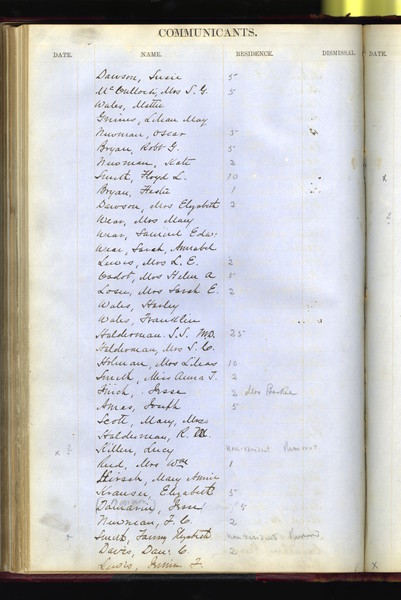 COMMUNICANTS.
DATE. NAME. RESIDENCE. DISMISSAL. DATE.
Dawson, Susie 5
McCulloch, Mrs S. G. 5
Wales, Mettie
Grimes, Lilian May
Newman, Oscar 5
Bryan, Robt G. 5
Newman, Kate 2
Smith, Floyd L. 10
Bryan, Hester 1
Dawson, Mrs Elizabeth 2
Wear, Mrs Mary
Wear, Samuel Edw:
Wear, Sarah, Annabel
Lewis, Mrs L. E. 2
Cadot, Mrs Helen A 5
Losee, Mrs Sarah E. 2
Wales, Harley
Wales, Franklin
Halderman. S. S. MD. 25
Halderman, Mrs S. C.
Holman, Mrs Lilias 10
Smith, Miss Anna T. 2
Finch, Jesse 2 Mrs
Ames, Joseph 5
Scott, Mary, Miss
Halderman, R. M.
x ? Killen, Lucy non-resident Removed
Reid, Mrs Wm 1
Hirsch, Mary Annie
Krauser, Elizabeth 5
Jesse 5
Newman, F. C. 2
Smith, Fanny Elizabeth non-resident Removed
Davis, Dan: C. 2
Lewis, F.